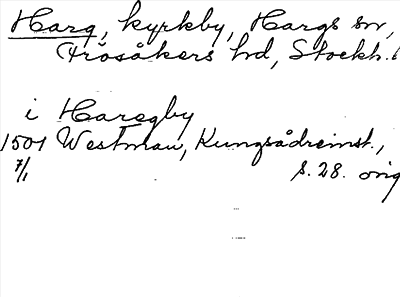 Harg, kyrkby, Hargs sn,
Frösåkers hd, Stockh. l
i Haregby
1501 Westman, Kungsådreinst.,
7/1 s. 28. orig